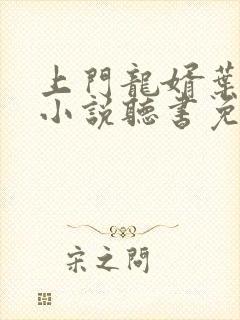 上門龍婿葉
小説聽書免
宋之問